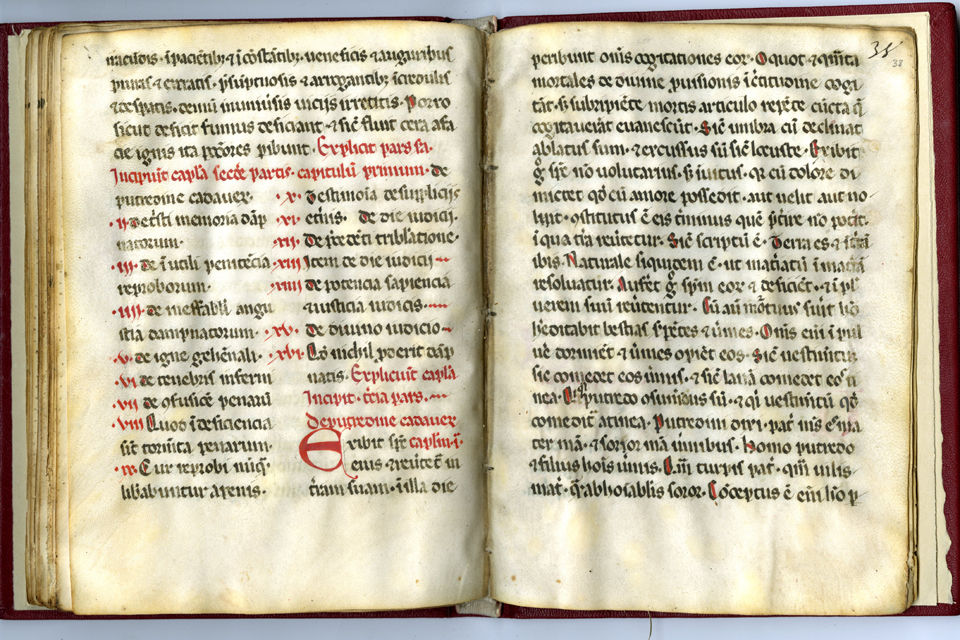 piratis · ⁊ raptoribus · p̄sūptuosis ⁊ arrogantib; īcredulis
⁊ desꝑatis · demū inmūisis uiciis irretitis · Porro
sicut deficit fumus deficiant · ⁊ sic̄ fluit cera a fa
cie ignis ita pc̄cores ꝑibunt · Explicit pars sa ·
Incipiūt capl̄a secōe partis · capitulū primum · de
putredine cadauer ·
· ii · de t̄sti memoria dāp
natorum ·
· iii · de ī utili penitēcia
reproborum ·
· iiii · de ineffabił angu
stia dampnatorum ·
· v · de igne gehēnali ·
· vi · de tenebris inferni
· vii · de ꝯfusiōe penarū
· viii · Quod īdeficiencia
sīt tormīta penarum ·
· ix · Cur reprobi nūq̄
lib̄abuntur a penis ·
· x · de suppliciis
· xi · et̄nis · de die iudicii ·
· xii · De p̄cedēti tribl̄atione ·
· xiii · Item de die iudicii
· xiiii · de potencia sapiencia
⁊ iusticia iudicis ·
· xv · de diuino iudicio
· xvi · Qđ nichil ꝓderit dāp
natis · Explicūit capl̄a
Incipit · t̄cia pars ·
de putredine cadauer
Exibit sp̄c capl̄m · i ·
eius ⁊ reūtet̄ in
t̄ram suam · ī illa die
38
38
peribunt om̄s cogitationes eor · O quot ⁊ q̄nta
mortales de diuine ꝓuisionis īc̄titudine cogi
tāt · s; subripiēte mortis articulo repēte cūcta q̄
cogitauerāt euanescūt · Sic̄ umbra cū declinat
ablatus sum · ⁊ excussus sū sic̄ locuste · Exibit
ḡ sp̄c nō uolūtarius · s; īuitus · qr cū dolore di
mictet qđ cū amore possedit · aut uelit aut no
lit · ꝯstitutus ē eis t̄minus quē p̄t̄ire nō pot̄it ·
ī qua t̄ra reūtetur · Sic̄ scriptū ē · Terra es ⁊ ī t̄ra
ibis · Naturale siquidem ē · ut mat̄iatū ī mat̄ia
resoluatur · Aufet ḡ sp̄m eor ⁊ deficiēt · ⁊ ī pl
uerem suū reūtentur · Cū aū mortuus fuit hō
h̄editabit bestias s̄pētes ⁊ ūmes · Om̄s eīi ī pul
ūe dormiēt ⁊ ūmes opiēt eos · Sic̄ uestimētū
sic comedet eos ūmis · ⁊ sic̄ lanā comedet eos ti
nea · putredo ꝯsumēdus sū · ⁊ q̄i uestimētū qđ
comedit̄ a tinea · Putredini dixi · pat̄ m̄s es ma
ter mā · ⁊ soror mā ūmibus · Homo putredo
⁊ filius hoīs ūmis · Qm̄ turpis pat̄ · qm̄ uilis
mat̄ · q̄ abhoīablis soror · Cōceptus ē eīi hō ꝑ